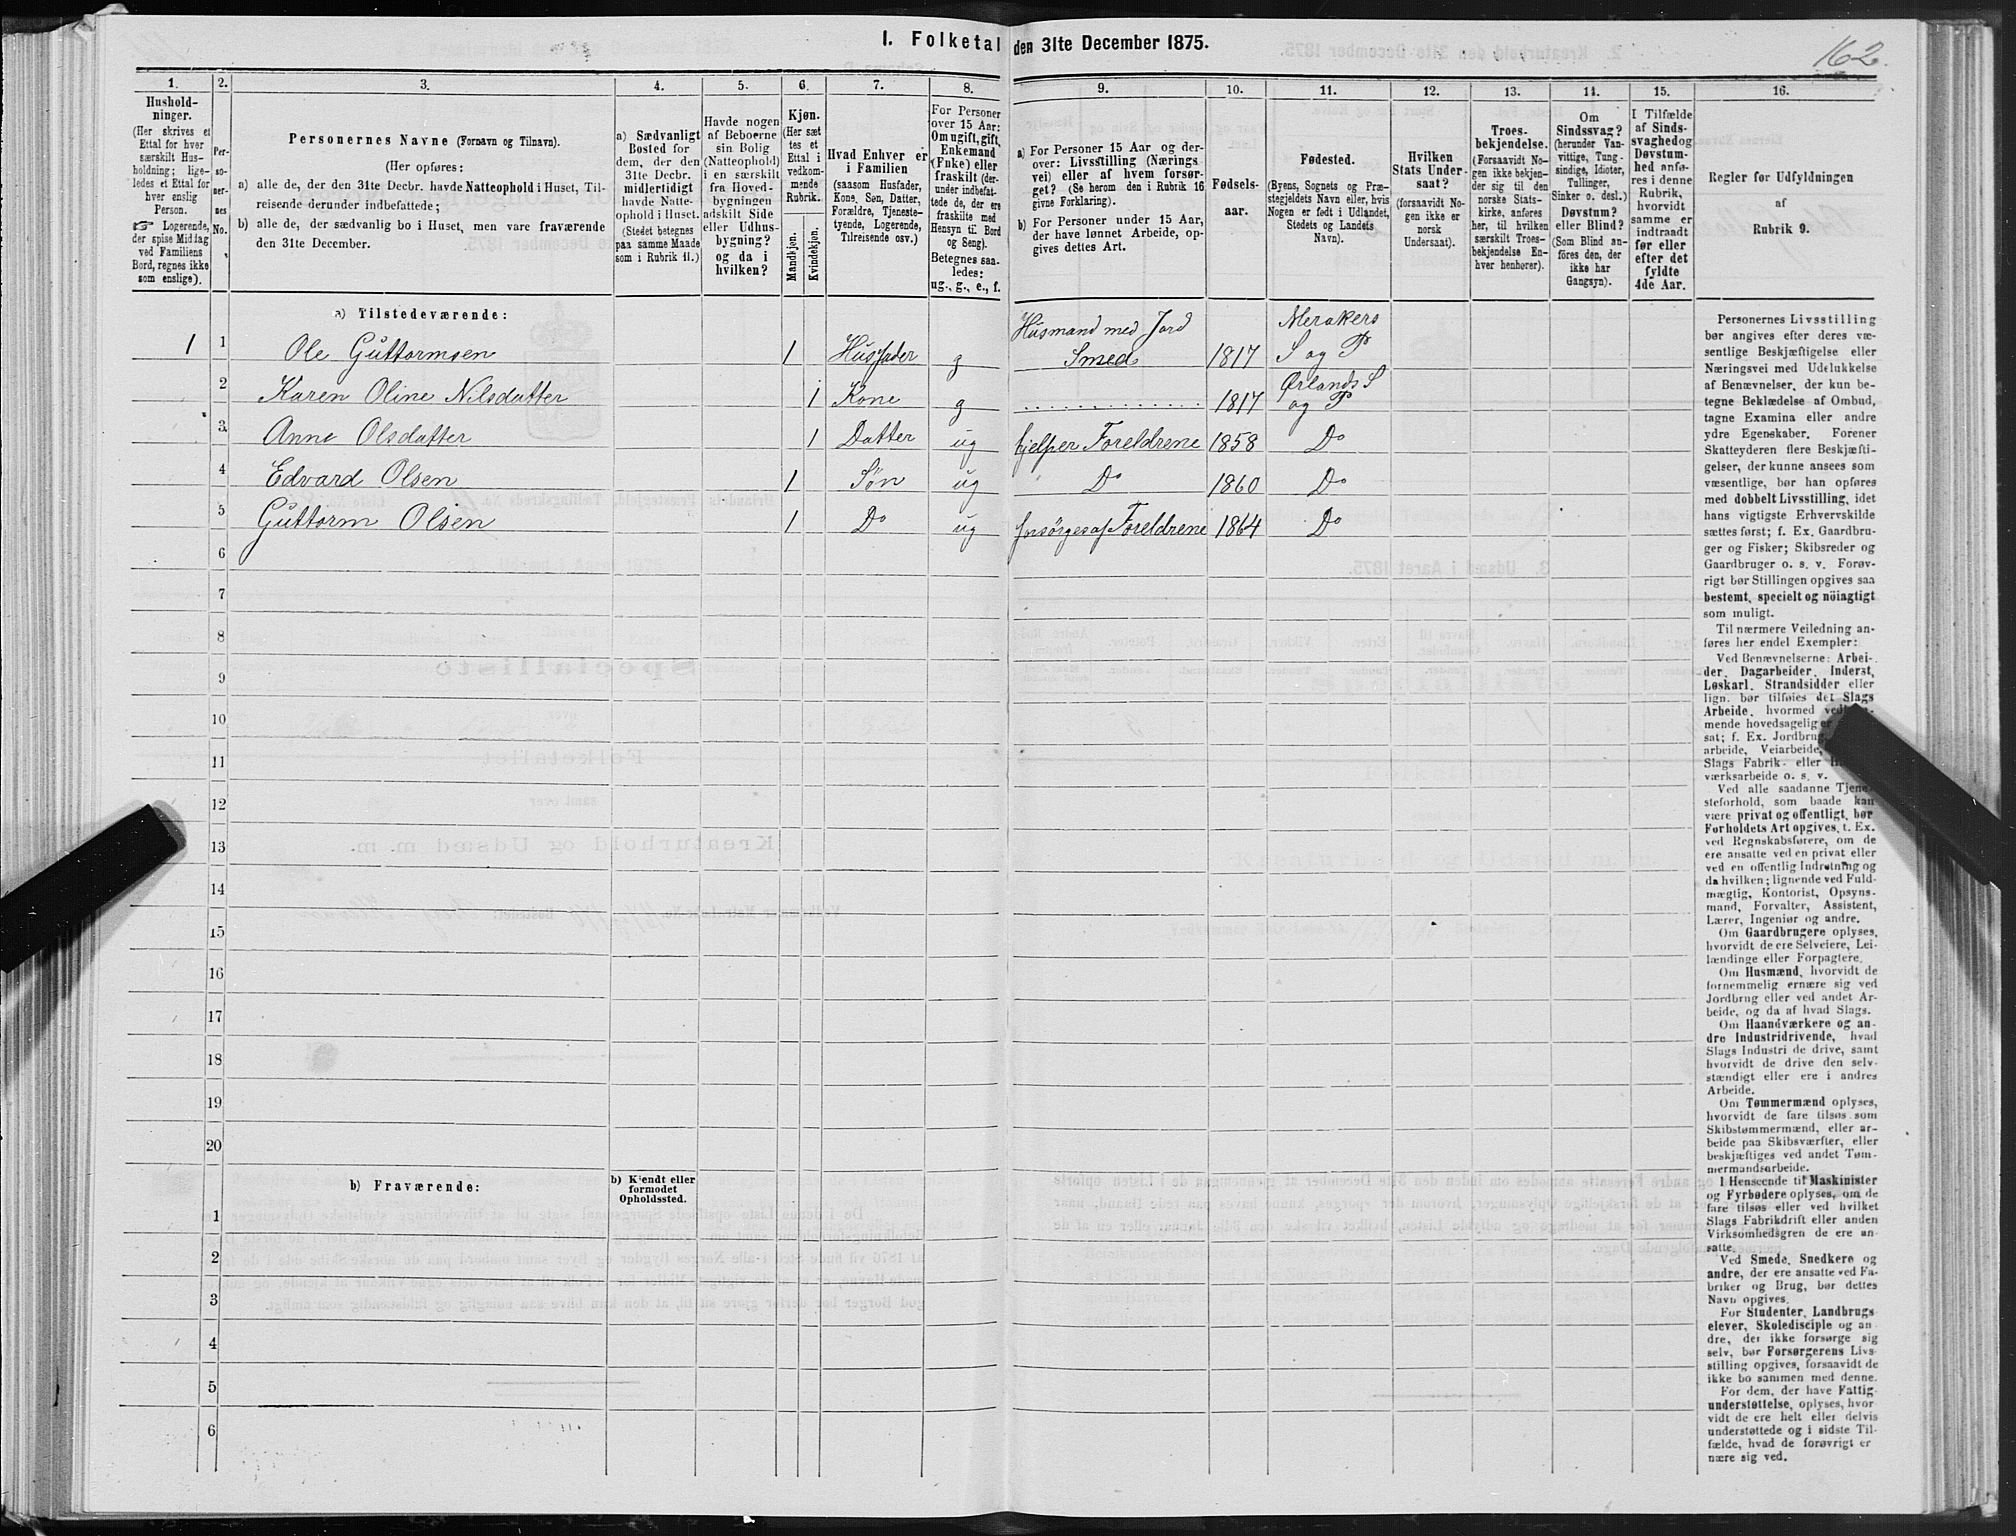 I. Folketal den 31te December 1875.
162.
1.
Hushold-
ninger.
(Her skrives et
Ettal for hver
særskilt Hus-
holdning; lige-
ledes et Ettal for
hver enslig
Person.
☞ Logerende,
der spise Middag
ved Familiens
Bord, regnes ikke
som enslige).
2.
Per-
so-
ner-
nes
No.
3.
Personernes Navne (Fornavn og Tilnavn).
(Her opføres:
a) alle de, der den 31te Decbr. havde Natteophold i Huset, Til-
reisende derunder indbefattede;
b) alle de, der sædvanlig bo i Huset, men vare fraværende
den 31te December.
4.
a) Sædvanligt
Bosted for
dem, der den
31te Decbr.
midlertidigt
havde Natte-
ophold i Huset.
(Stedet betegnes
paa samme Maade
som i Rubrik 11.)
5.
Havde nogen
af Beboerne
sin Bolig
(Natteophold)
i en særskilt
fra Hoved-
bygningen
adskilt Side
eller Udhus-
bygning?
og da i
hvilken?
6.
Kjøn.
(Her sæt
tes et
Ettal i
vedkom-
mende
Rubrik.)
Mandkjøn.
Kvindekjøn.
7.
Hvad Enhver er
i Familien
(saasom Husfader,
Kone, Søn, Datter,
Forældre, Tjeneste-
tyende, Logerende,
Tilreisende osv.)
8.
For Personer
over 15 Aar:
Om ugift, gift,
Enkemand
(Enke) eller
fraskilt (der-
under indbefat-
tede de, der ere
fraskilte med
Hensyn til Bord
og Seng).
Betegnes saa-
ledes:
ug., g., e., f.
9.
a) For Personer 15 Aar og der-
over: Livsstilling (Nærings
vei) eller af hvem forsør-
get? (Se herom den i Rubrik 16
givne Forklaring).
b) For Personer under 15 Aar,
der have lønnet Arbeide, op-
gives dettes Art.
10.
Fødsels-
aar.
11.
Fødested.
(Byens, Sognets og Præ-
stegjeldets Navn eller, hvis
Nogen er født i Udlandet,
Stedets og Landets
Navn).
12.
Hvilken
Stats Under-
saat?
(forsaavidt No-
gen ikke er
norsk
Undersaat).
13.
Troes-
bekjendelse.
(Forsaavidt No-
gen ikke bekjen-
der sig til den
norske Stats-
kirke, anføres
her, til hvilken
særskilt Troes-
bekjendelse En-
hver henhører).
14.
Om
Sindssvag?
(herunder Van-
vittige, Tung-
sindige, Idioter,
Tullinger,
Sinker o. desl.)
Døvstum?
eller Blind?
(Som Blind an-
føres den, der
ikke har
Gangsyn).
15.
I Tilfælde
af Sinds-
svaghed og
Døvstum-
hed anfø-
res i denne
Rubrik,
hvorvidt
samme er
indtraadt
før eller
efter det
fyldte
4de Aar.
16.
Regler for Udfyldningen
af
Rubrik 9.
a) Tilstedeværende:
1 1 Ole Guttormsen 1 Husfader g Husmand med Jord Smed 1817 Merakers S og P
2 Karen Oline Nilsdatter 1 Kone g .............. 1817 Ørlands S og P
3 Anne Olsdatter 1 Datter ug hjelper Foreldrene 1858 Do
4 Edvard Olsen 1 Søn ug Do 1860 Do
5 Guttorm Olsen 1 Do ug forsörges af Foreldrene 1864 Do
6
7
8
9
10
11
12
13
14
15
16
17
18
19
20
b) Fraværende:
b) Kjendt eller
formodet
Opholdssted.
1
2
3
4
5
6
Personernes Livsstilling
bør angives efter deres væ-
sentlige Beskjæftigelse eller
Næringsvei med Udelukkelse
af Benævnelser, der kun be-
tegne Beklædelse af Ombud,
tagne Examina eller andre
ydre Egenskaber. Forener
Skatteyderen flere Beskjæfti-
gelser, der kunne ansees som
væsentlige, bør han opføres
med dobbelt Livsstilling, idet
hans vigtigste Erhvervskilde
sættes først; f. Ex. Gaardbru-
ger og Fisker; Skibsreder og
Gaardbruger o. s. v. Forøv-
rigt bør Stillingen opgives saa
bestemt, specielt og nöiagtigt
som muligt.
Til nærmere Veiledning an-
føres her endel Exempler:
Ved Benævnelserne: Arbei-
der, Dagarbeider, Inderst,
Løskarl, Strandsidder eller
lign. bør tilføies det Slags
Arbeide, hvormed
mende hovedsagelig er
sat; f. Ex. Jordbrug
arbeide, Veiarbeide,
Slags Fabrik- eller
værksarbeide o. s. v.
Ved alle saadanne Tjene-
steforhold, som baade kan
være privat og offentligt, bør
Forholdets Art opgives, t. Ex.
ved Regnskabsførere, om de
ere ansatte ved en privat eller
ved en offentlig Indretning og
da hvilken; lignende ved Fuld-
mægtig, Kontorist, Opsyns-
mand, Forvalter, Assistent,
Lærer, Ingeniør og andre.
Om Gaardbrugere oplyses,
hvorvidt de ere Selveiere, Lei-
lændinge eller Forpagtere.
Om Husmænd, hvorvidt de
fornemmelig ernære sig ved
Jordbrug eller ved andet Ar-
beide, og da af hvad Slags.
Om Haandværkere og an-
dre Industridrivende, hvad
Slags Industri de drive, samt
hvorvidt de drive den selv-
stændigt eller ere i andres
Arbeide.
Om Tømmermænd oplyses,
hvorvidt de fare tilsøs som
Skibstømmermænd, eller ar-
beide paa Skibsværfter, eller
beskjæftiges ved andet Tøm-
mermandsarbeide.
I Henseende til Maskinister
og Fyrbødere oplyses, om de
fare tilsøs eller ved hvilket
Slags Fabrikdrift eller anden
Virksomhedsgren de ere an-
satte.
Ved Smede, Snedkere og
andre, der ere ansatte ved Fa-
briker og Brug, bør dettes
Navn opgives.
For Studenter, Landbrugs
elever, Skoledisciple og an-
dre, der ikke forsørge sig
selv, bør Forsørgerens Livs-
stilling opgives, forsaavidt de
ikke bo sammen med denne.
For dem, der have Fattig-
understøttelse, oplyses, hvor
vidt de ere helt eller delvis
understøttede og i sidste Til-
fælde, hvad de forøvrigt er
nære sig ved.